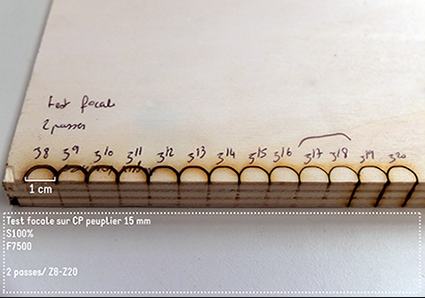 test focale
2 passes
38 39 310 311 312 313 314 315 316 317 318 319 320
1 cm
Test focale sur CP peuplier 15 mm
S100%
F7500
2 passes/ Z8-Z20